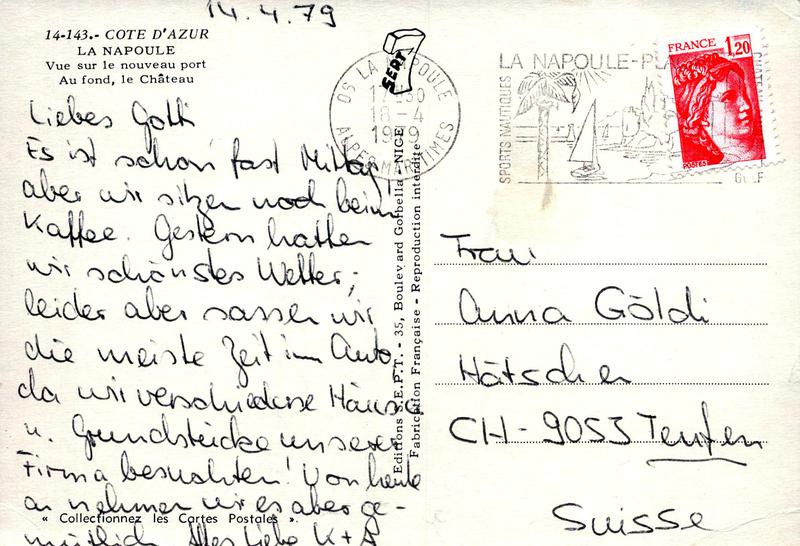 14.4.79
14-143.- COTE D'AZUR
LA NAPOULE
Vue sur le nouveau port
Au fond, le Château
Liebes Gotti
Es ist schon fast Mittag,
aber wir sitzen noch beim
Kaffee. Gestern hatten
wir schönstes Wetter;
leider aber sassen wir
die meiste Zeit im Auto,
da wir verschiedene Häuser
u. Grundstücke unserer
Firma besuchten! Von heute
an nehmen wir es aber ge-
mütlich. Alles Liebe K+A
« Collectionnez les Cartes Postales ».
SEPT
06 LA NAPOULE
17-30
18-4
1979
ALPES MARITIMES
Editions S.E.P.T. - 35, Boulevard Gorbella - NICE
Fabrication Française - Reproduction interdite
LA NAPOULE-PLA
SPORTS NAUTIQUES
GOLF
FRANCE 1,20
POSTES
Frau
Anna Göldi
Hätschen
CH-9053 Teufen
Suisse